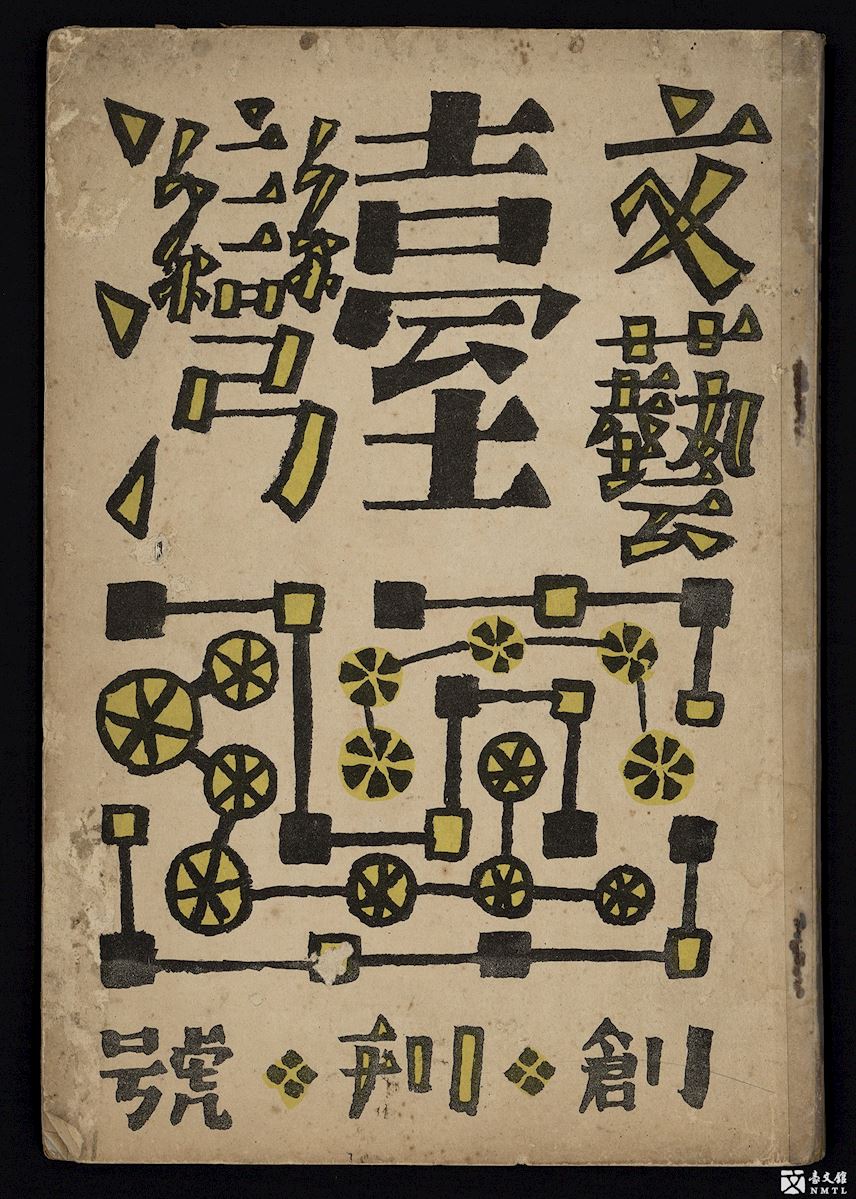 文藝
臺灣
創刊號
臺文館
NMTL